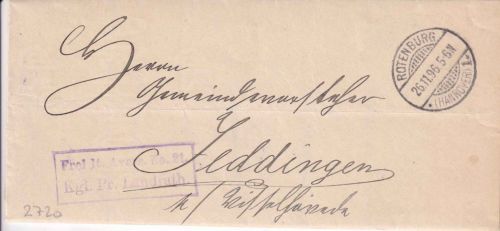 Herrn
Gemeindevorsteher
Jeddingen
b/ Visselhövede
ROTENBURG
26.11.96.5-6N
*(HANNOVER)1*
Frei lt. Avers. No. 21.
Kgl. Pr. Landrath.
2720